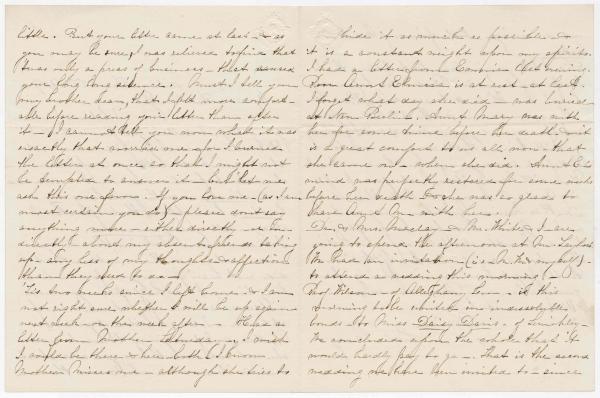 little. But your letter came at last - & as
you may be sure, I was relieved to find that
'twas only a press of business - that caused
your long long silence. Must I tell you
my brother dear, that I felt more comfort-
able before reading your letter than after
it - I cannot tell you now what it was
exactly that worried me - for I burned
the letter at once, so that I might not
be tempted to answer it - but let me
ask this one favor. If you love me - (as I am
most certain you do) - please don't say
anything more - either directly or in-
directly about my absent friends taking
up - any less of my thoughts & affections
than they used to do -
'Tis two weeks since I left home - & I am
not right sure whether I will be up again
next week or the week after - Had a
letter from Mother Thursday - I wish
I could be there & here both - I know
Mother misses me - although she tries to
hide it as much as possible - &
it is a constant weight upon my spirits.
I had a letter from last evening.
Poor Aunt is at rest - at last.
I forget what day she died - was buried
at New Berlin. Aunt Mary was with
her for some time before her death - & it
is a great comfort to us all now - that
she came on when she did. Aunt E's
mind was perfectly restored for some weeks
before her death & she was so glad to
have Aunt M with her.
Dr. & Mrs. Maclay & Mr. White & I are
going to spend the afternoon at Mr.
We had an invitation (is - Mr. W & myself) -
to attend a wedding this morning -
Prof Wilson - of Allegheny - is this
morning to be united in indissoluble
bonds to Miss Daisy Davis - of
We concluded upon the whole that it
would hardly pay to go - That is the second
wedding we have been invited to - since